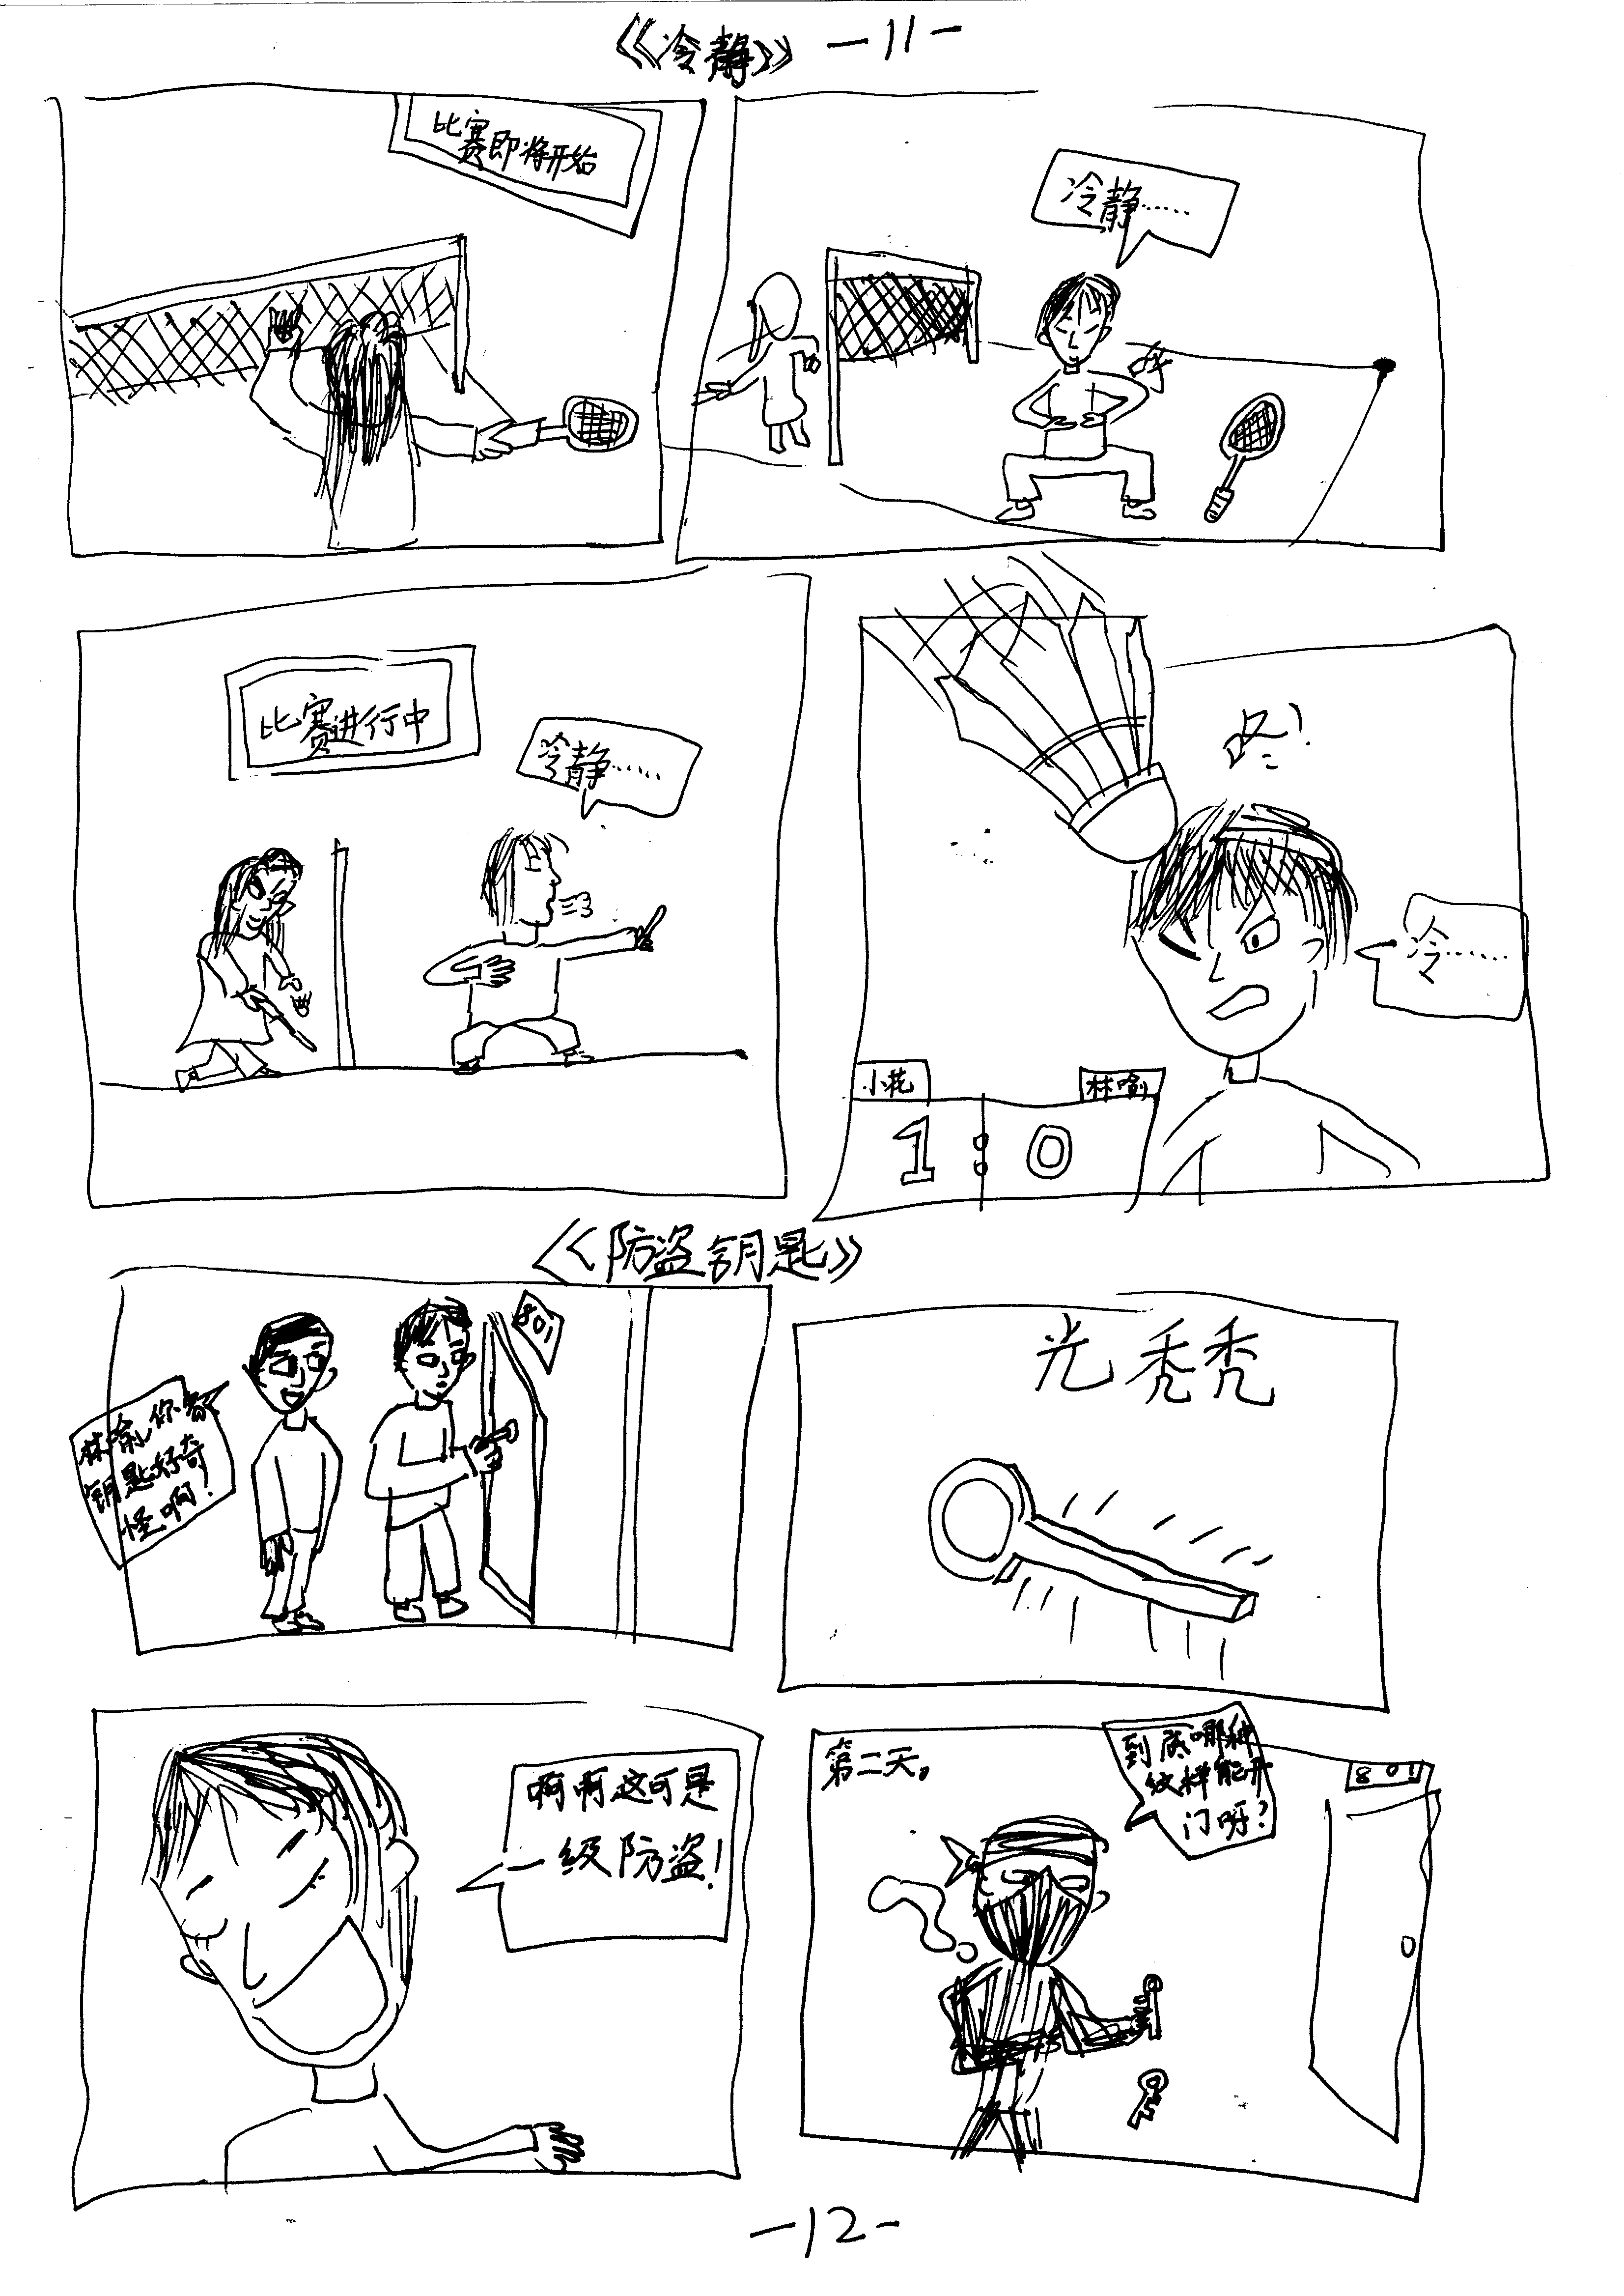 《冷静》 -11-
比赛即将开始
冷静……
比赛进行中
冷静……
咚!
冷……
小花
林喻
1:0
《防盗钥匙》
林喻,你家
钥匙好奇
怪啊!
801
光秃秃
啊啊这可是
一级防盗!
第二天,
到底哪种
纹样能开
门呀?
801
-12-